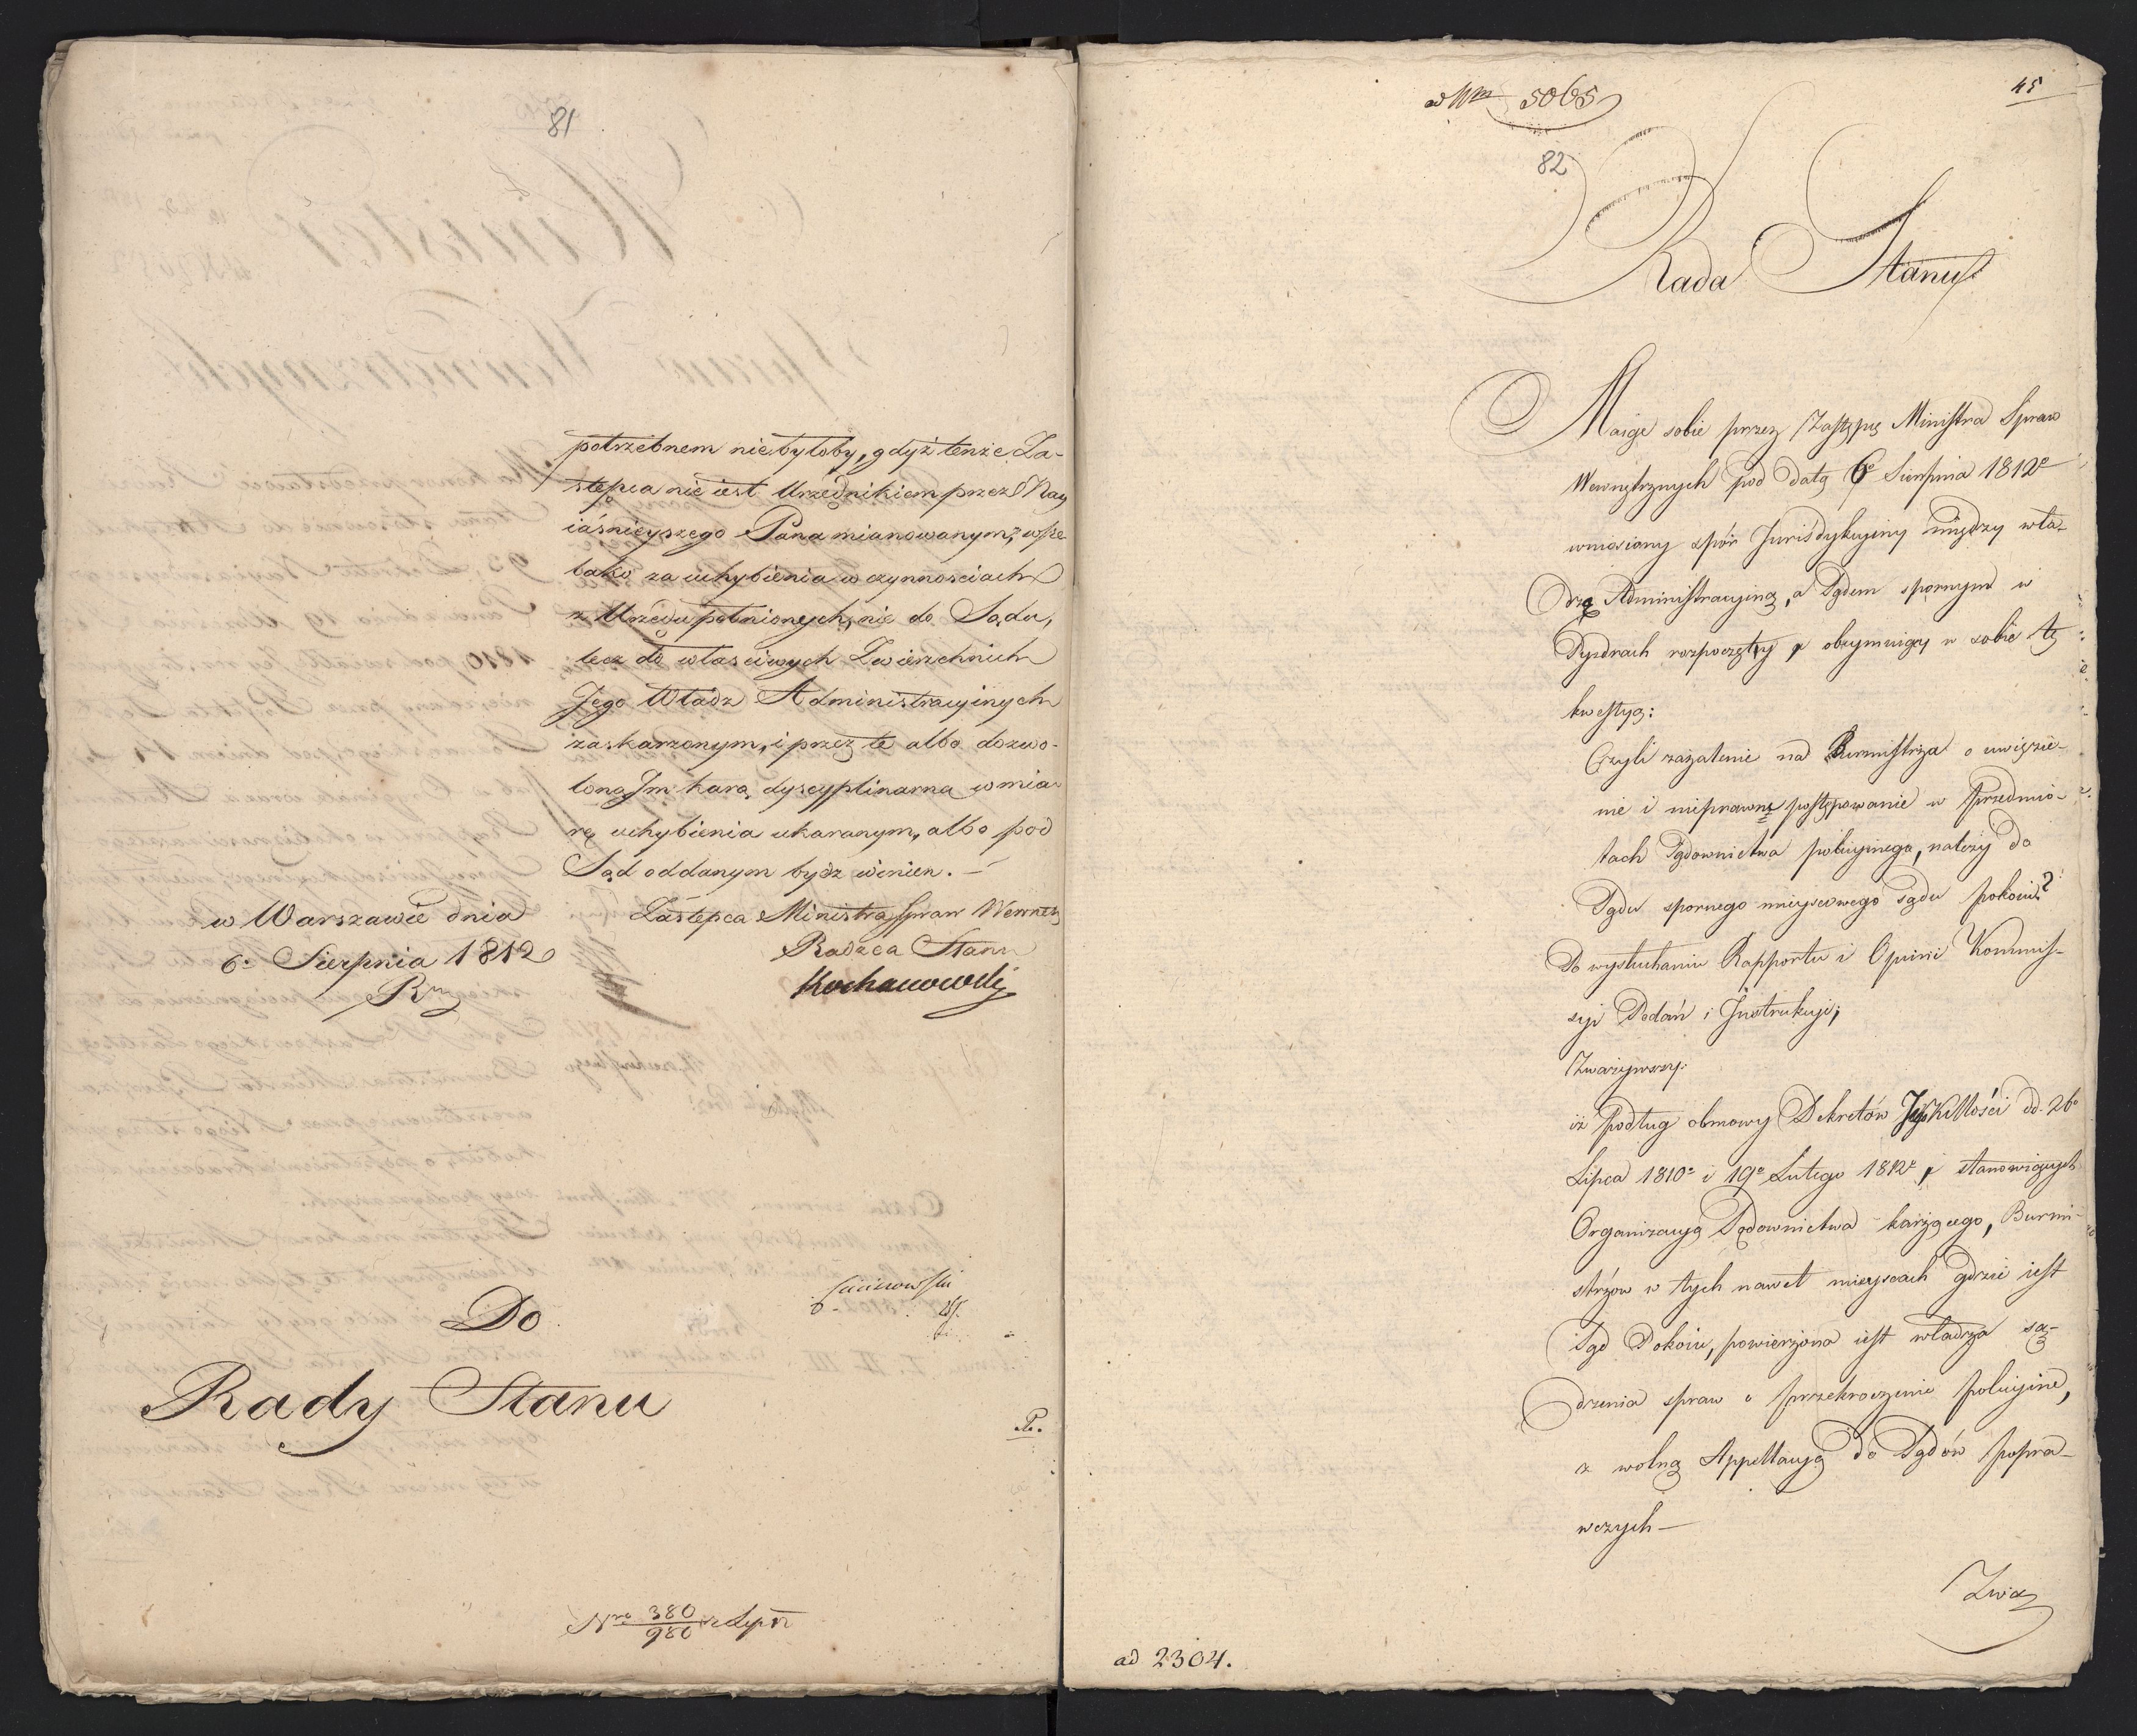 81
potrzebnem niebyłoby, gdyż tenże Za-
stępca nie iest Urzędnikiem przez Nay
iaśnieyszego Pana mianowanym, wsze
lako za uchybienia w czynnosciach
z Urzędu pełnionych, nie do Sądu,
lecz do własciwych Zwierzchnich
Jego Władz Administracyinych
zaskarzonym, i przez te albo dozwo-
loną Im karą dyscyplinarną w mia
rę uchybienia ukaranym, albo pod
Sąd oddanym bydz winien. –
w Warszawie dnia
6. Sierpnia 1812
Zastępca Ministra Spraw Wewnętz
Radzca Stanu
Kochanowski
Do
Rady Stanu
Nro 380/980
ad Num 5065
45
82
Rada Stanu
Maiąc sobie przez Zastępcę Ministra Spraw
Wewnętrznych pod datą 6o Sierpnia 1812o
wniesiony spór Jurisdykcyiny między wła-
dzą Administracyiną, a Sądem spornym w
Pyzdrach rozpoczęty, obeymuiący w sobie tę
kwestyą:
Czyli zażalenie na Burmistrza o uwięzie-
nie i nieprawne postępowanie w przedmio-
tach Sądownictwa policyinego, należy do
Sądu spornego mieyscowego sądu pokoiu?
Po wysłuchaniu Rapportu i Opinii Kommis-
syi Podań i Instrukcyi,
Zważywszy:
iż podług osnowy Dekretów JegoKMości dd. 26o
Lipca 1810o i 19o Lutego 1812o stanowiących
Organizacyą Sądownictwa karzącego, Burmi-
strzów w tych nawet mieyscach gdzie iest
Sąd Pokoiu, powierzona iest władza są-
dzenia spraw o przekroczenie policyine,
z wolną Appellacyą do Sądów popra-
wczych –
Zwaz
ad 2304.